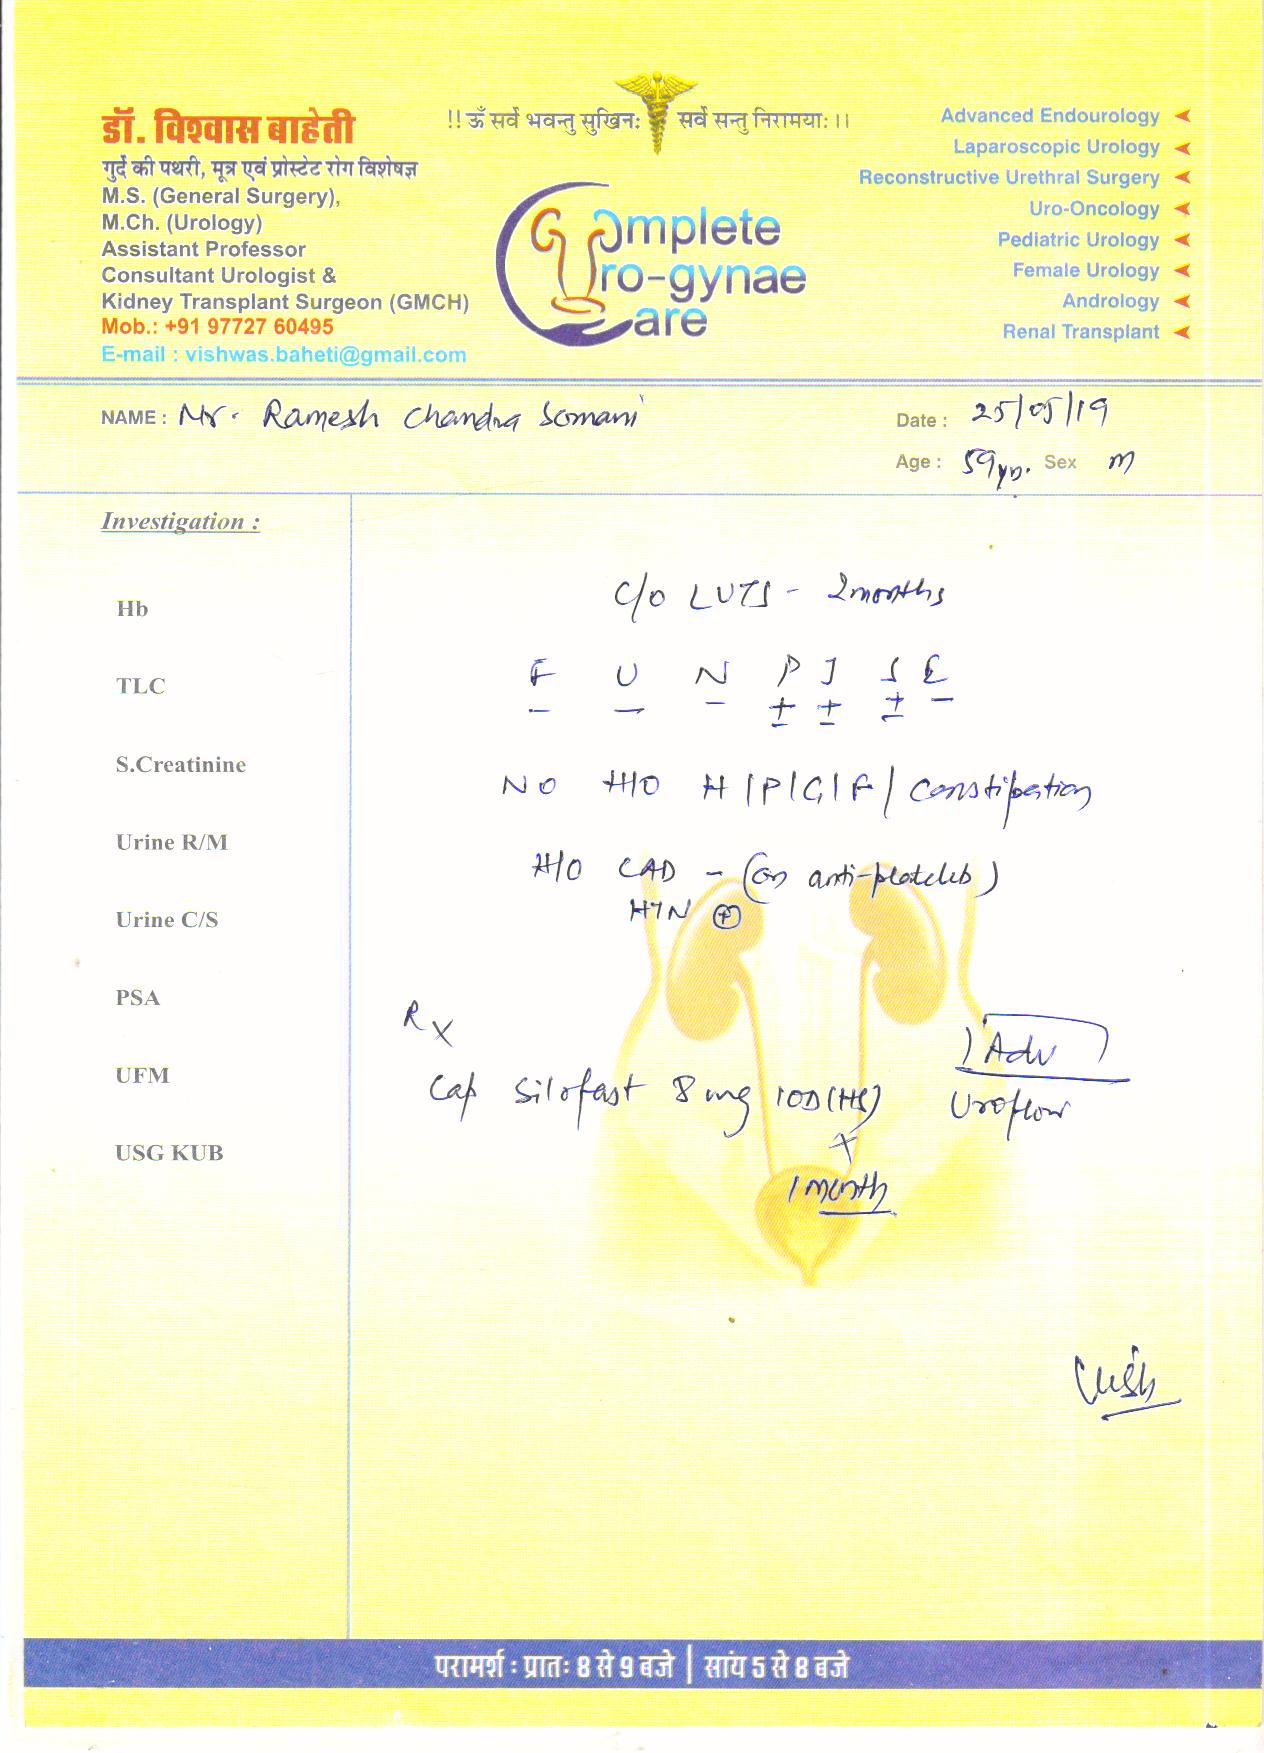 !! ॐ सर्वे भवन्तु सुखिनः सर्वे सन्तु निरामयाः ।।
डॉ. विश्वास बाहेती
गुर्दे की पथरी, मूत्र एवं प्रोस्टेट रोग विशेषज्ञ
M.S. (General Surgery),
M.Ch. (Urology)
Assistant Professor
Consultant Urologist &
Kidney Transplant Surgeon (GMCH)
Mob.: +91 97727 60495
E-mail : vishwas.baheti@gmail.com
Complete
Uro-gynae
Care
Advanced Endourology
Laparoscopic Urology
Reconstructive Urethral Surgery
Uro-Oncology
Pediatric Urology
Female Urology
Andrology
Renal Transplant
NAME : Mr. Ramesh Chandra Somani
Date : 25/05/19
Age : 59 yrs. Sex M
Investigation :
Hb
TLC
S.Creatinine
Urine R/M
Urine C/S
PSA
UFM
USG KUB
C/O LUTS - 2 months
F U N P I S E
- - - ± ± ± -
NO H/O H/P/G/F/ Constipation
H/O CAD - (on anti-platelets)
HTN ⊕
Rx
Cap Silofast 8 mg 1OD (HS)
x
1 month
Adv
Uroflow
परामर्श : प्रातः 8 से 9 बजे | सांय 5 से 8 बजे